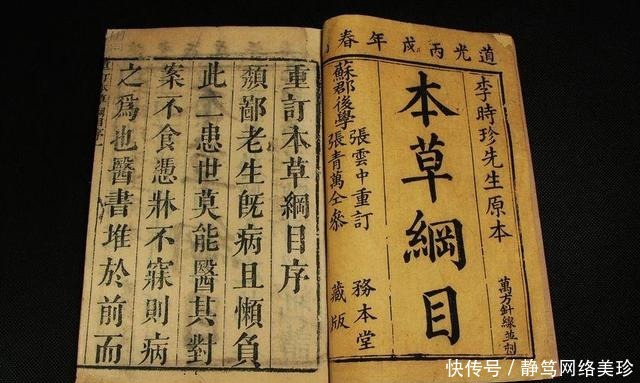 道光丙戌年春
李時珍先生原本
萬方針線並刻
本草綱目
蘇郡後學
張雲中重訂
張青萬仝參
務本堂
藏版
重訂本草綱目序
頹鄙老生旣病且懶負
此二患世莫能醫其對
案不食憑牀不寐則病
之爲也醫書堆於前而
快传号/静笃网络美珍